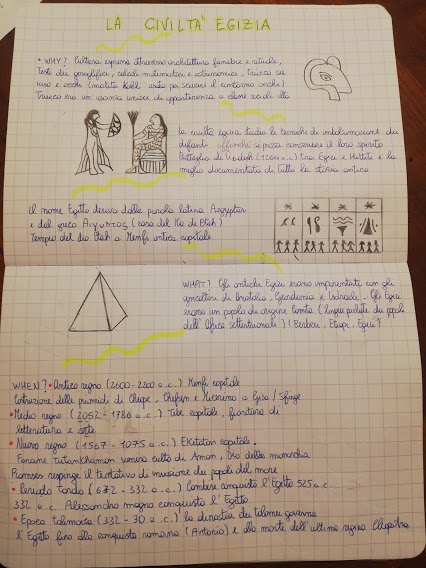 LA CIVILTA' EGIZIA
• WHY? Cultura espressa attraverso architettura funebre e rituale,
Testi dei geroglifici, calcoli matematici e astronomici, trucco su
viso e occhi (matita Kohl usata per scurire il contorno occhi)
Trucco era un usanza unisex di appartenenza a classe sociale alta
la civiltà egizia studia le tecniche di imbalsamazione dei
defunti affinché si possa conservare il loro spirito
battaglia di Kadesh (1264 a.c.) tra Egizi e Hittiti è la
meglio documentata di tutta la storia antica
Il nome Egitto deriva dalla parola latina Aegyptus
e dal greco (casa del Ka di Ptah)
Tempio del dio Ptah a Menfi antica capitale
WHAT? Gli antichi Egizi erano imparentati con gli
agricoltori di Anatolia, Giordania e Israele. Gli Egizi
erano un popolo di origine Camita (lingue parlate dai popoli
dell'Africa settentrionale) (Berberi, Etiopi, Egizi)
WHEN? • Antico regno (2600-2200 a.c.) Menfi capitale
Costruzione delle piramidi di Cheope, Chefren e Micerino a Giza / Sfinge
• Medio regno (2052-1786 a.c.) Tebe capitale, fioritura di
letteratura e arte
• Nuovo regno (1567-1075 a.c.) Ekhetaton capitale,
Faraone Tutankhamon venera culto di Amon, Dio della monarchia
Ramses respinge il tentativo di invasione dei popoli del mare
• Periodo Tardo (672-332 a.c.) Cambise conquista l'Egitto 525 a.c.
332 a.c. Alessandro magno conquista l'Egitto
• Epoca tolemaica (332-30 a.c.) la dinastia dei tolomei governa
l'Egitto fino alla conquista romana (Antonio) e alla morte dell'ultima regina Cleopatra